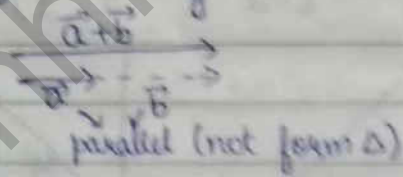 a⃗+b⃗
a⃗
b⃗
parallel (not form Δ)